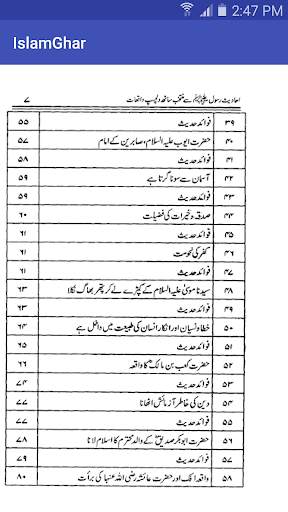 2:47 PM
IslamGhar
احادیث رسول ﷺ سے منتخب ساٹھ دلچسپ واقعات ۷
۳۹ فوائد حدیث ۵۵
۴۰ حضرت ایوب علیہ السلام، صابرین کے امام ۵۷
۴۱ فوائد حدیث ۵۸
۴۲ آسمان سے سونا گرتا ہے ۵۹
۴۳ فوائد حدیث ۵۹
۴۴ صدقہ و خیرات کی فضیلت ۶۰
۴۵ فوائد حدیث ۶۱
۴۶ کفر کی نحوست ۶۱
۴۷ فوائد حدیث ۶۱
۴۸ سیدنا موسیٰ علیہ السلام کے کپڑے لے کر پتھر بھاگ نکلا ۶۳
۴۹ فوائد حدیث ۶۳
۵۰ خطا و نسیان اور انکار انسان کی طبیعت میں داخل ہے ۶۴
۵۱ فوائد حدیث ۶۵
۵۲ حضرت کعب بن مالکؓ کا واقعہ ۶۶
۵۳ فوائد حدیث ۷۴
۵۴ دین کی خاطر آزمائش اٹھانا ۷۴
۵۵ فوائد حدیث ۷۷
۵۶ حضرت ابوبکر صدیقؓ کے والد محترم کا اسلام لانا ۷۸
۵۷ فوائد حدیث ۷۹
۵۸ واقعہ افک اور حضرت عائشہ رضی اللہ عنہا کی برأت ۸۰